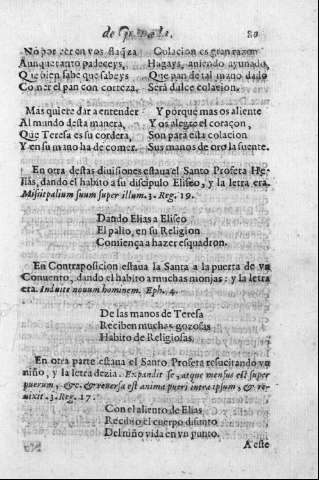 de Granada. 80
No por ver en vos flaqza
Aunque tanto padeceys,
Que bien sabe que sabeys
Comer el pan con corteza,
Colacion es gran razon
Hagays, auiendo ayunado,
Que pan de tal mano dado
Será dulce colacion.
Mas quiere dar a entender
Al mundo desta manera,
Que Teresa es su cordera,
Y en su mano ha de comer.
Y porque mas os aliente
Y os alegre el coraçon,
Son para esta colacion
Sus manos de oro la fuente.
En otra destas diuisiones estaua el Santo Profeta He-
lias, dando el habito a su discipulo Eliseo, y la letra era.
Misitpalium suum super illum. 3. Reg. 19.
Dando Elias a Eliseo
El palio, en su Religion
Comiença a hazer esquadron.
En Contraposicion estaua la Santa a la puerta de vn
Conuento, dando el habito a muchas monjas: y la letra
era. Induite nouum hominem. Eph. 4.
De las manos de Teresa
Reciben muchas gozosas
Habito de Religiosas.
En otra parte estaua el Santo Profeta resucitando vn
niño, y la letra dezia. Expandit se, atque mensus est super
puerum, &c. & reuersa est anima pueri intra ipsum, & re-
uixit. 3. Reg. 17.
Con el aliento de Elias
Recibio el cuerpo difunto
Del niño vida en vn punto.
A este